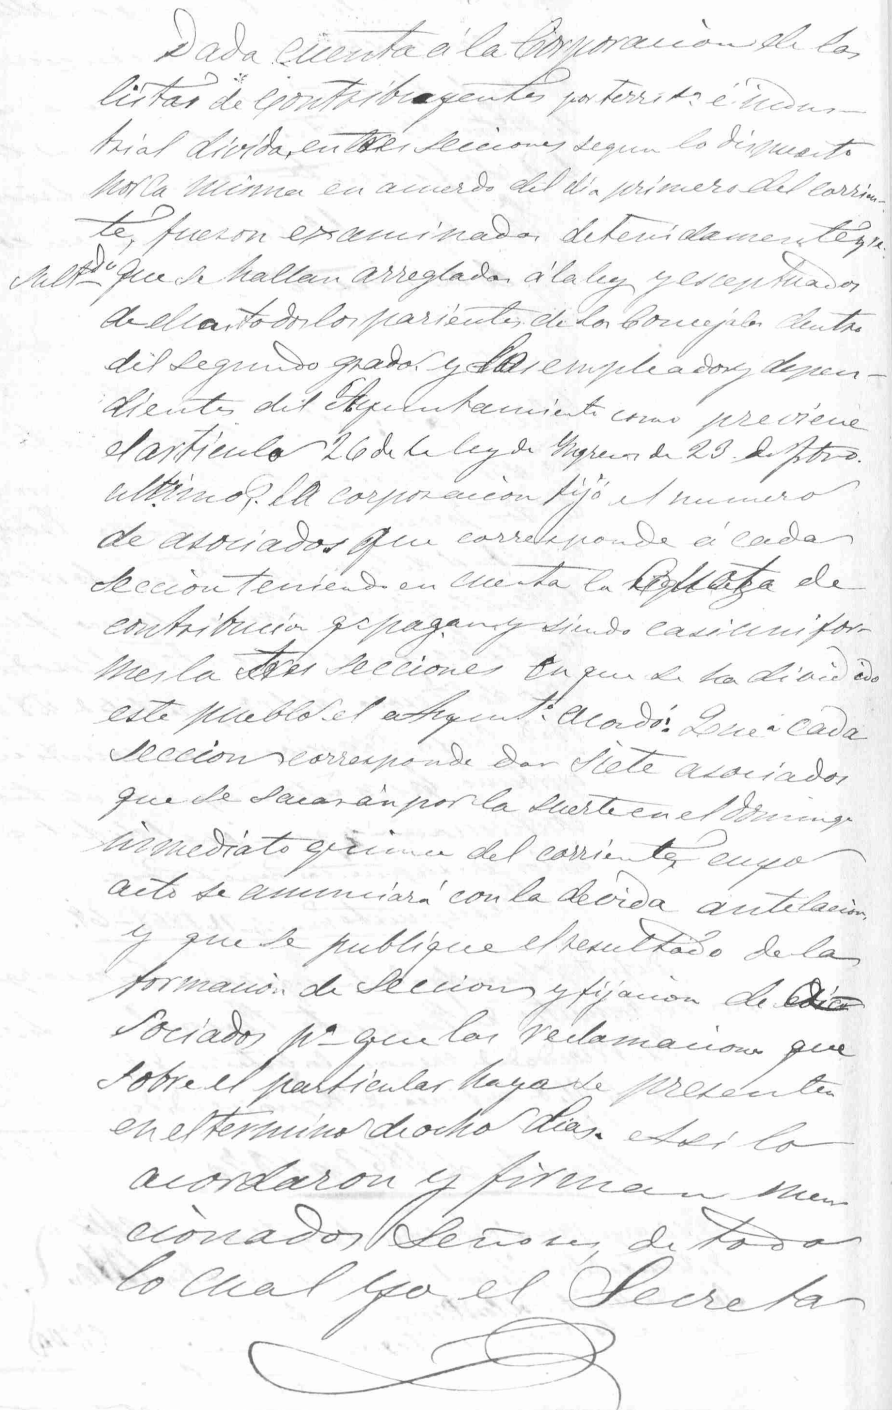 Dada cuenta á la Corporacion de las
listas de contribuyentes por territ.ª é indus-
trial dividas en tres secciones segun lo dispuesto
por la misma en acuerdo del dia primero del corrien-
te, fueron examinadas detenidamente y re-
sultdo que se hallan arregladas á la ley y esceptuados
de ellas todos los parientes de los Concejales dentro
del segundo grado y los empleados y depen-
dientes del Ayuntamiento como previene
el articulo 26 de la ley de Ingresos de 23 de
ultimo. La corporacion fijó el numero
de asociados que corresponde á cada
seccion teniendo en cuenta la cuota de
contribucion qe pagan y siendo casi unifor-
mes la tres secciones en que se ha dividido
este pueblo el Ayunt.º acordó: Que á cada
seccion corresponde dar siete asociados
que se sacarán por la suerte en el domingo
inmediato quince del corriente, cuyo
acto se anunciará con la devida antelacion,
y que se publique el resultado de la
formacion de secciones y fijacion de
sociados pª que las reclamaciones que
sobre el particular haya se presenten
en el termino de ocho dias. Asi lo
acordaron y firman men
cionados Señores, de todo
lo cual yo el Secreta